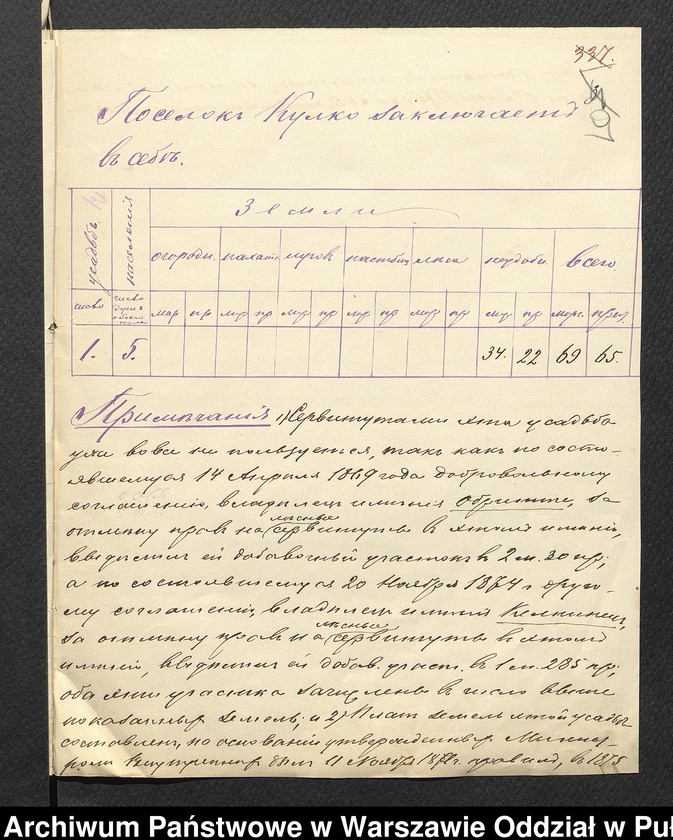 337.
Поселокъ Кулко заключаетъ
въ себѣ.
Земли
усадьбъ населенія огородн. пахатн. луговъ пастбищ лѣса неудобн. всего
число число душъ обоего пола мор пр мор пр мор пр мор пр мор пр мор пр морг. прент.
1. 5. 34. 22 69 65.
Примѣчанія 1) Сервитутами эта усадьба
уже вовсе не пользуется, такъ какъ по состо-
явшемуся 14 Апрѣля 1869 года добровольному
соглашенію, владѣлецъ имѣнія за
отмѣну правъ на лѣсные сервитуты въ этомъ имѣніи,
выдѣлилъ ей добавочный участокъ въ 2 м. 30 пр;
а по состоявшемуся 20 Ноября 1874 г друго-
му соглашенію, владѣлецъ имѣнія
за отмѣну правъ на лѣсные сервитуты въ этомъ
имѣніи, выдѣлилъ ей добав. участ. въ 1 м. 285 пр;
оба эти участка зачислены въ число выше
показанныхъ земель; и 2) Планъ земель этой усадьбы
составленъ, на основаніи утвержденныхъ Минист-
ромъ Внутреннихъ дѣлъ 11 Ноября правилъ, въ 1875
Archiwum Państwowe w Warszawie Oddział w Puł